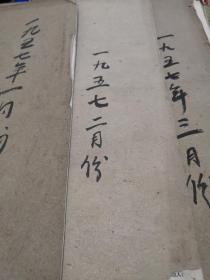 一九五七年一月份
一九五七二月份
一九五七年三月份